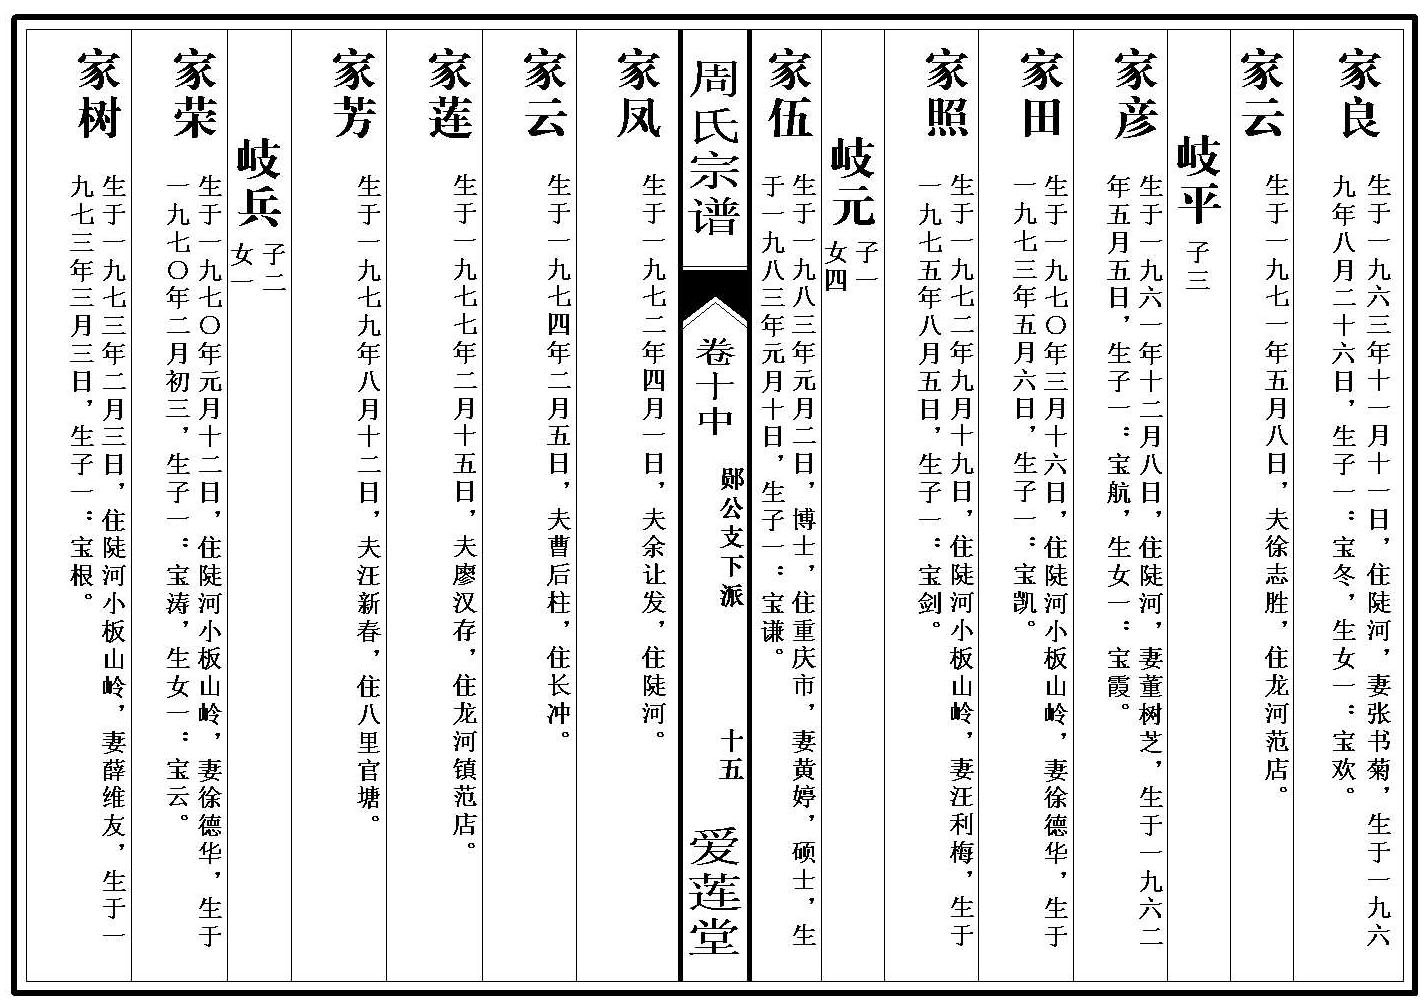 家良
生于一九六三年十一月十一日，住陡河，妻张书菊，生于一九六
九年八月二十六日，生子一：宝冬，生女一：宝欢。
家云
生于一九七一年五月八日，夫徐志胜，住龙河范店。
岐平
子三
家彦
生于一九六一年十二月八日，住陡河，妻董树芝，生于一九六二
年五月五日，生子一：宝航，生女一：宝霞。
家田
生于一九七〇年三月十六日，住陡河小板山岭，妻徐德华，生于
一九七三年五月六日，生子一：宝凯。
家照
生于一九七二年九月十九日，住陡河小板山岭，妻汪利梅，生于
一九七五年八月五日，生子一：宝剑。
岐元
子一
女四
家伍
生于一九八三年元月二日，博士，住重庆市，妻黄婷，硕士，生
于一九八三年元月十日，生子一：宝谦。
周氏宗谱
卷十中
郧公支下派
十五
爱莲堂
家凤
生于一九七二年四月一日，夫余让发，住陡河。
家云
生于一九七四年二月五日，夫曹后柱，住长冲。
家莲
生于一九七七年二月十五日，夫廖汉存，住龙河镇范店。
家芳
生于一九七九年八月十二日，夫汪新春，住八里官塘。
岐兵
子二
女一
家荣
生于一九七〇年元月十二日，住陡河小板山岭，妻徐德华，生于
一九七〇年二月初三，生子一：宝涛，生女一：宝云。
家树
生于一九七三年二月三日，住陡河小板山岭，妻薛维友，生于一
九七三年三月三日，生子一：宝根。